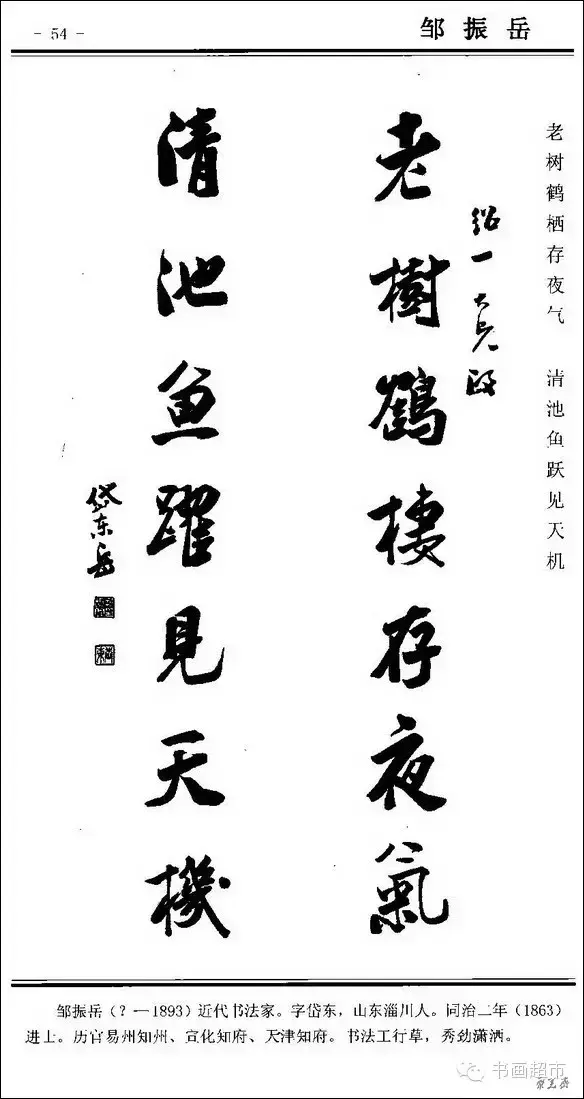 - 54 -
邹振岳
老树鹤栖存夜气 清池鱼跃见天机
老樹鶴棲存夜氣
清池魚躍見天機
岱东岳
邹振岳(?—1893)近代书法家。字岱东,山东淄川人。同治二年(1863)
进士。历官易州知州、宣化知府、天津知府。书法工行草,秀劲潇洒。
书画超市